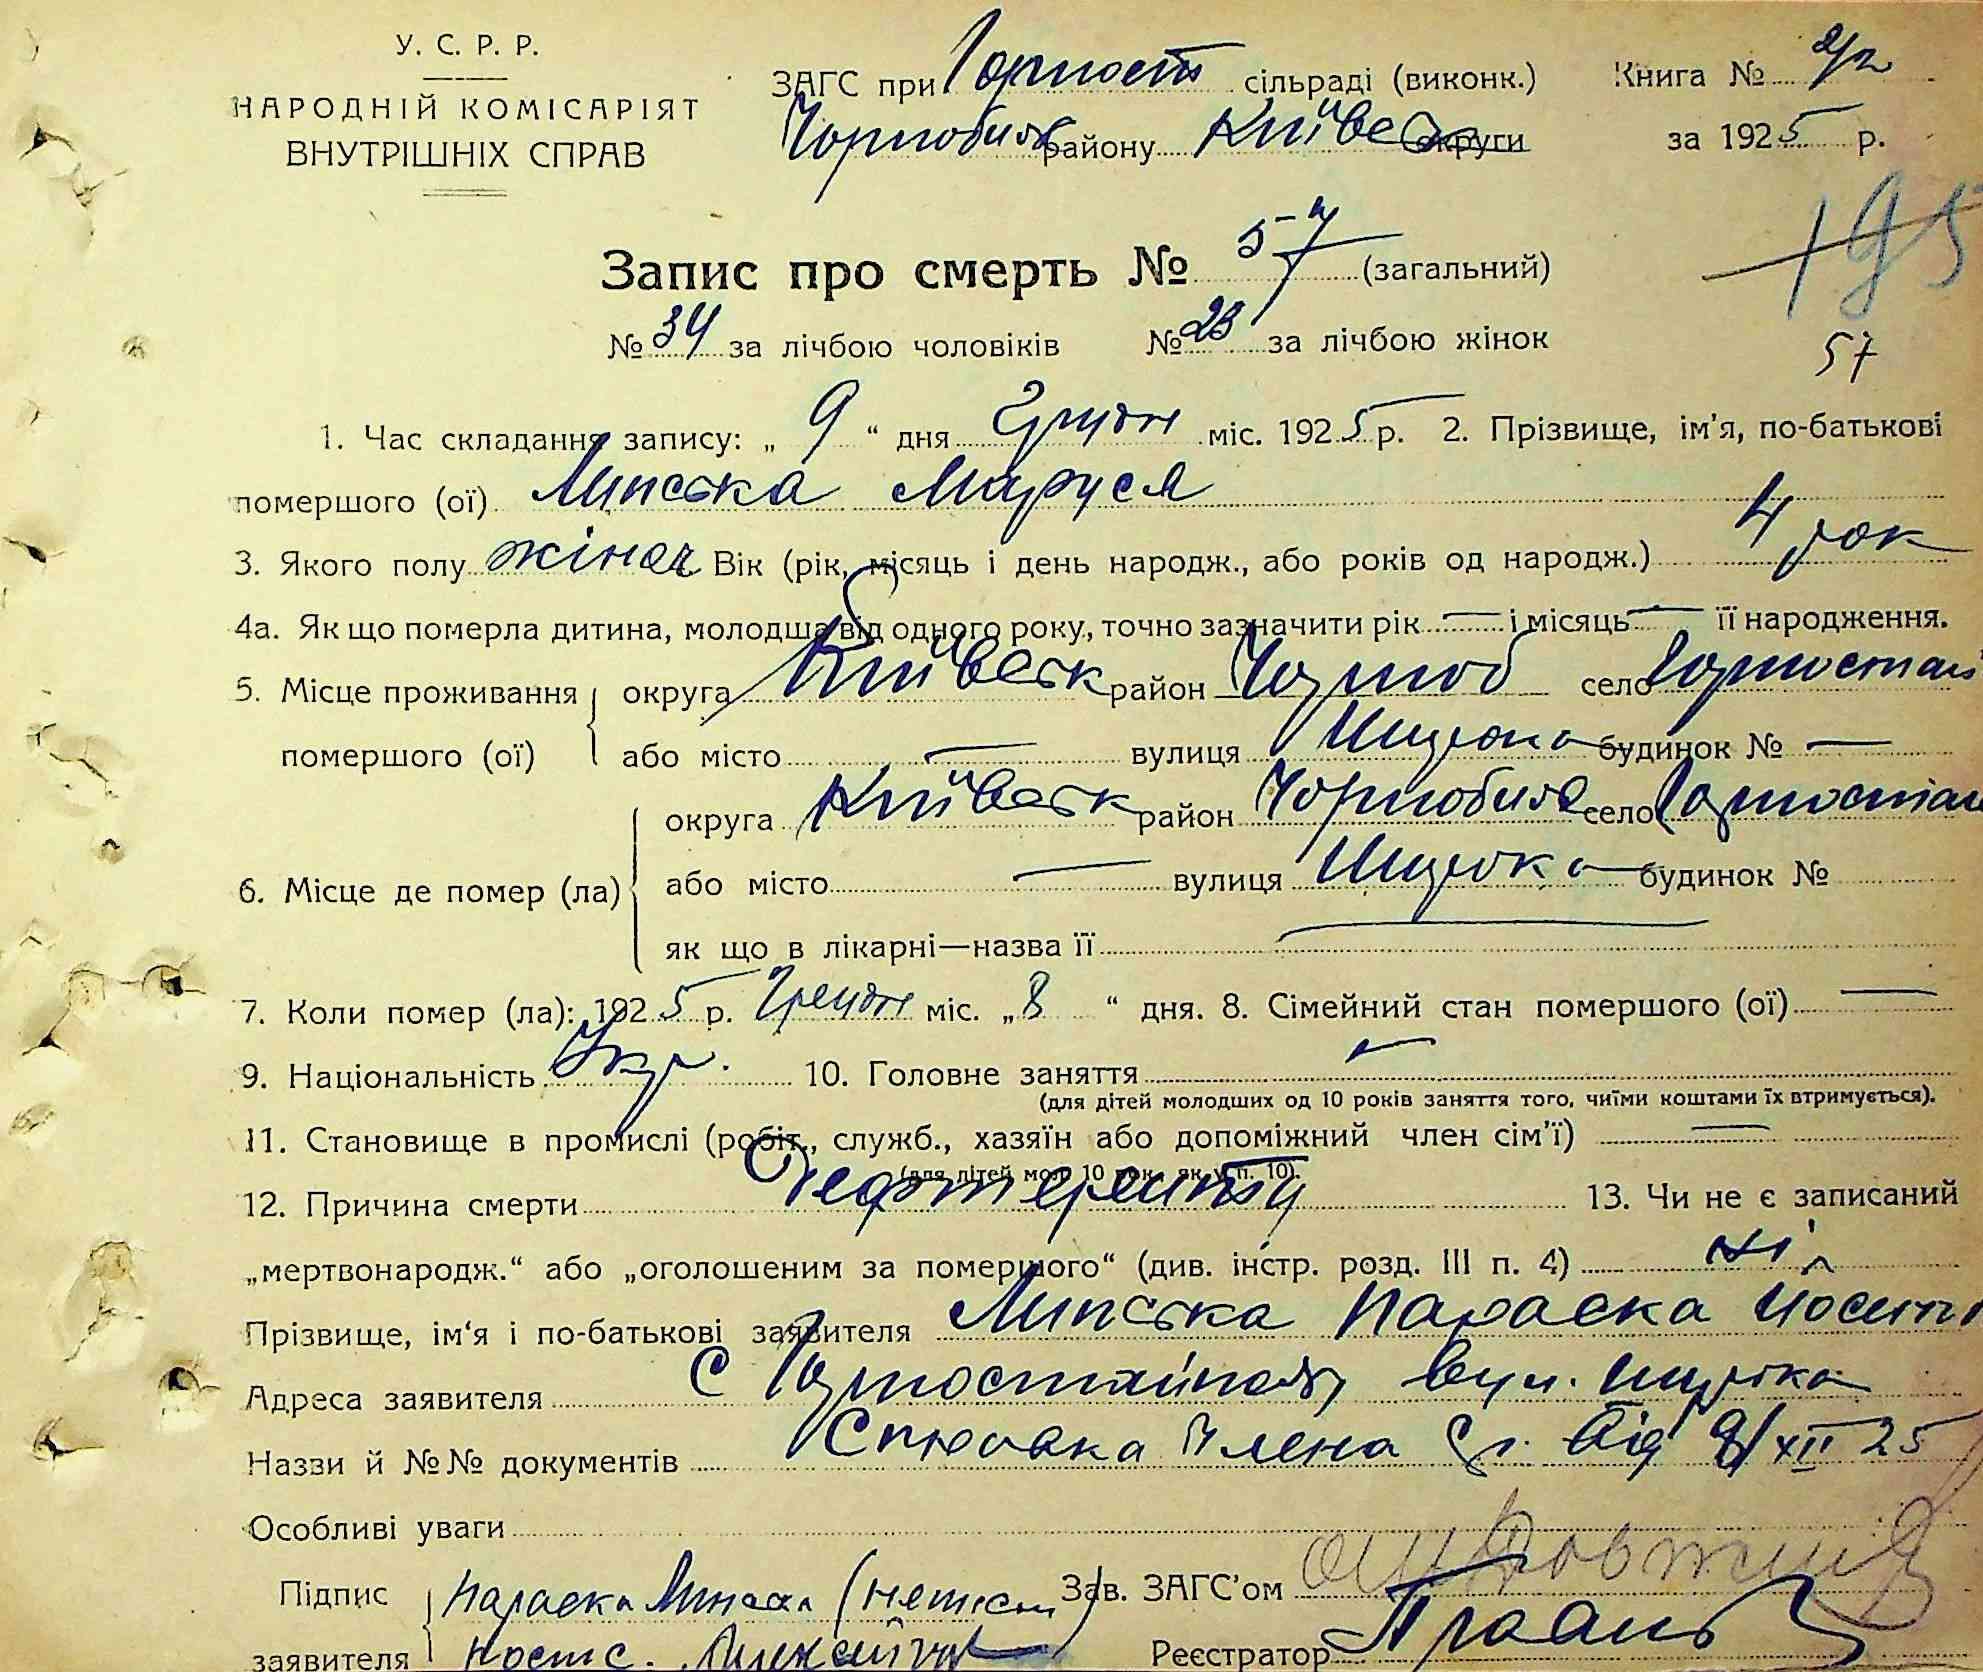 У. С. Р. Р.
НАРОДНІЙ КОМІСАРІЯТ
ВНУТРІШНІХ СПРАВ
ЗАГС при Горност сільраді (виконк.) Книга № 2/2
Чорнобил району Київськ округи за 1925 р.
195
Запис про смерть № 57 (загальний)
№ 34 за лічбою чоловіків № 23 за лічбою жінок
57
1. Час складання запису: „ 9 “ дня Грудн міс. 1925 р. 2. Прізвище, ім'я, по-батькові
помершого (ої) Липська Маруся
3. Якого полу жіноч Вік (рік, місяць і день народж., або років од народж.) 4 рок
4а. Як що померла дитина, молодша від одного року, точно зазначити рік — і місяць — її народження.
5. Місце проживання округа Київськ район Чорноб село Горностай
помершого (ої) або місто — вулиця Широка будинок № —
округа Київськ район Чорнобил село Горностай
6. Місце де помер (ла) або місто — вулиця Широка будинок №
як що в лікарні—назва її —
7. Коли помер (ла): 1925 р. Грудн міс. „ 8 “ дня. 8. Сімейний стан помершого (ої) —
9. Національність Укр. 10. Головне заняття —
(для дітей молодших од 10 років заняття того, чиїми коштами їх втримується).
11. Становище в промислі (робіт., служб., хазяїн або допоміжний член сім'ї) —
(для дітей мол. 10 рок. як у п. 10).
12. Причина смерти 13. Чи не є записаний
„мертвонародж.“ або „оголошеним за помершого“ (див. інстр. розд. III п. 4) ні
Прізвище, ім'я і по-батькові заявителя Липська Параска Йосип
Адреса заявителя С Горностайпол, вул. Широка
Назви й №№ документів члена С.р. від 9/XII 25
Особливі уваги
Підпис Параска Липська Зав. ЗАГС'ом
заявителя Реєстратор